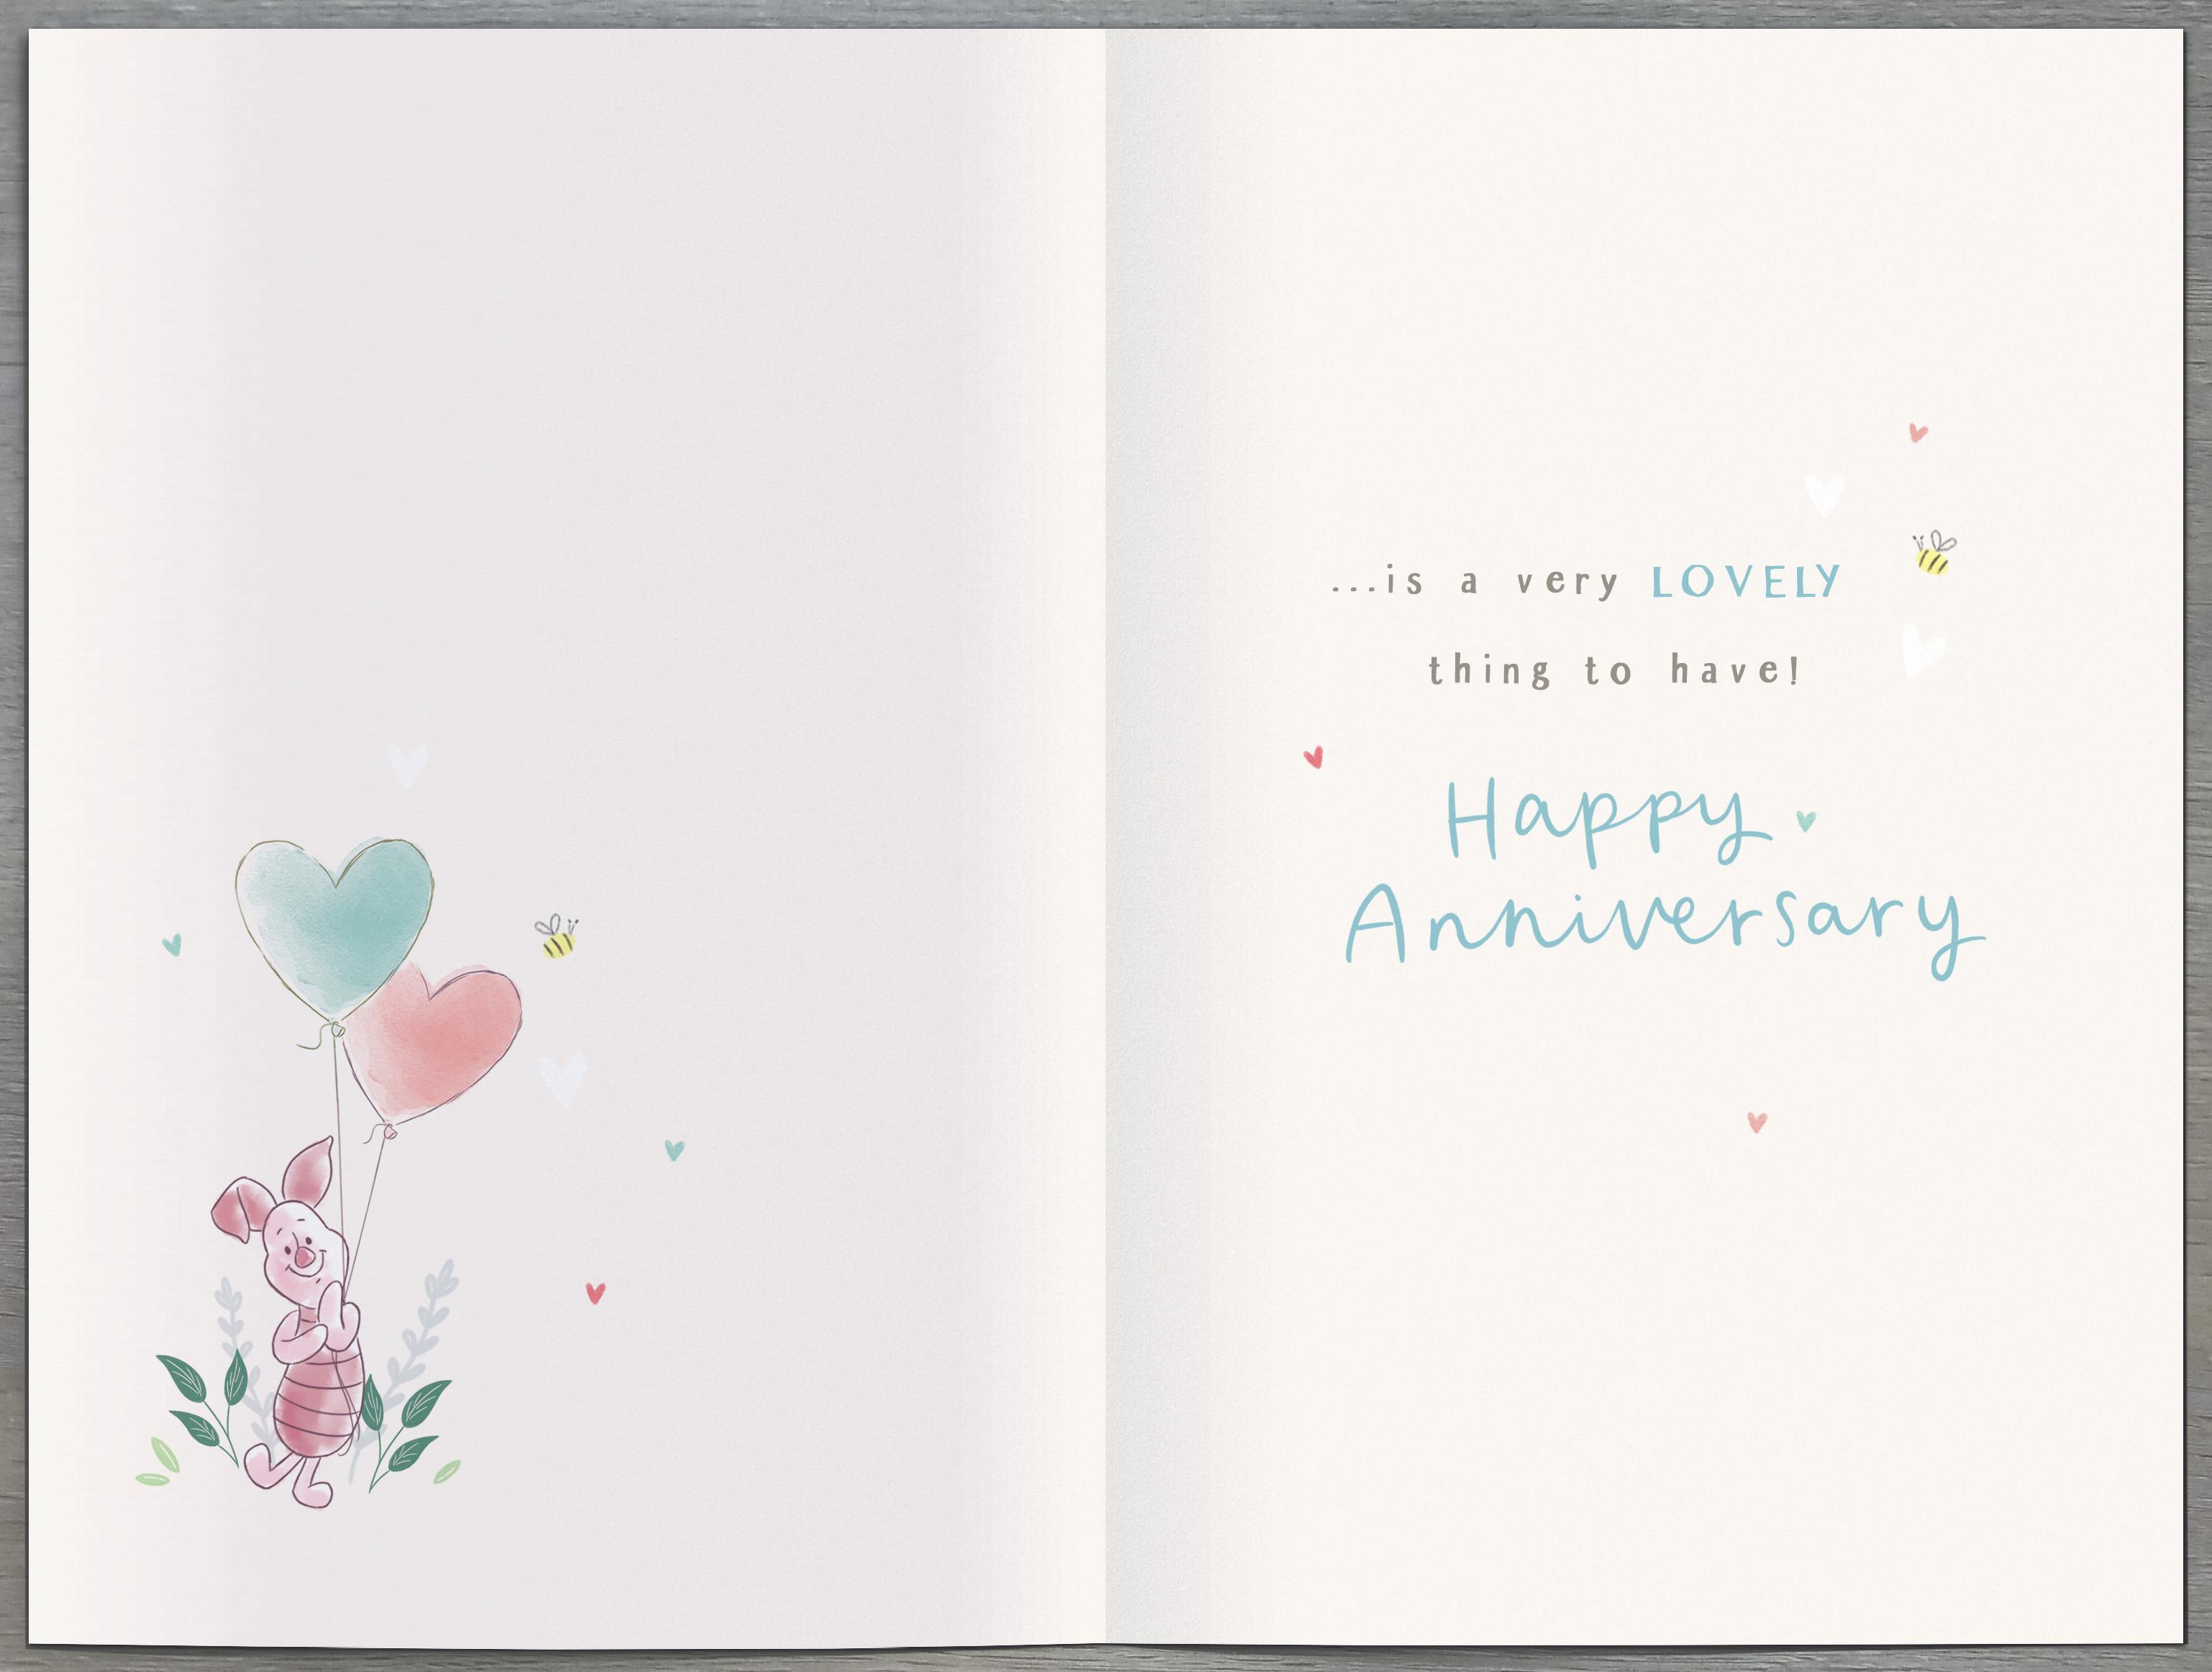 ...is a very LOVELY
thing to have!
Happy
Anniversary